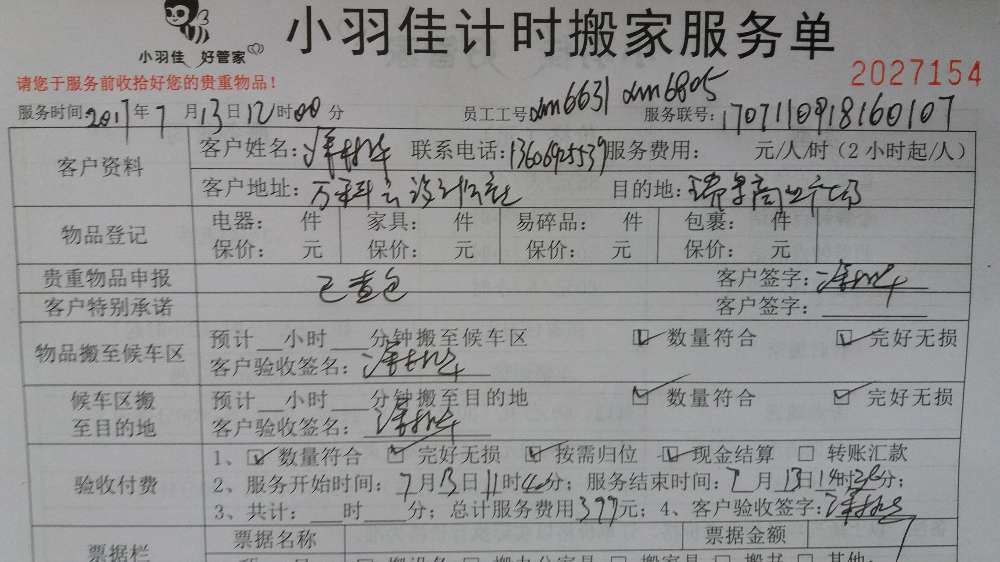 小羽佳 好管家
小羽佳计时搬家服务单
请您于服务前收拾好您的贵重物品！
2027154
服务时间2017年7月13日12时00分 员工工号xm6631 xm6805 服务联号：170711091816 0107
客户资料 客户姓名： 联系电话：13606925539服务费用： 元/人/时（2小时起/人）
客户地址：万科云设计公社 目的地：瑞景商业广场
物品登记 电器： 件 家具： 件 易碎品： 件 包裹： 件
保价： 元 保价： 元 保价： 元 保价： 元
贵重物品申报 已查包 客户签字：
客户特别承诺 客户签字：
物品搬至候车区 预计__小时___分钟搬至候车区 数量符合 完好无损
客户验收签名：
候车区搬至目的地 预计__小时___分钟搬至目的地 数量符合 完好无损
客户验收签名：
验收付费 1、数量符合 完好无损 按需归位 现金结算 转账汇款
2、服务开始时间：7月13日11时40分；服务结束时间：7月13日14时30分；
3、共计：___时___分；总计服务费用377元；4、客户验收签字：
票据栏 票据名称 票据金额
搬设备 搬办公家具 搬家具 搬书 其他